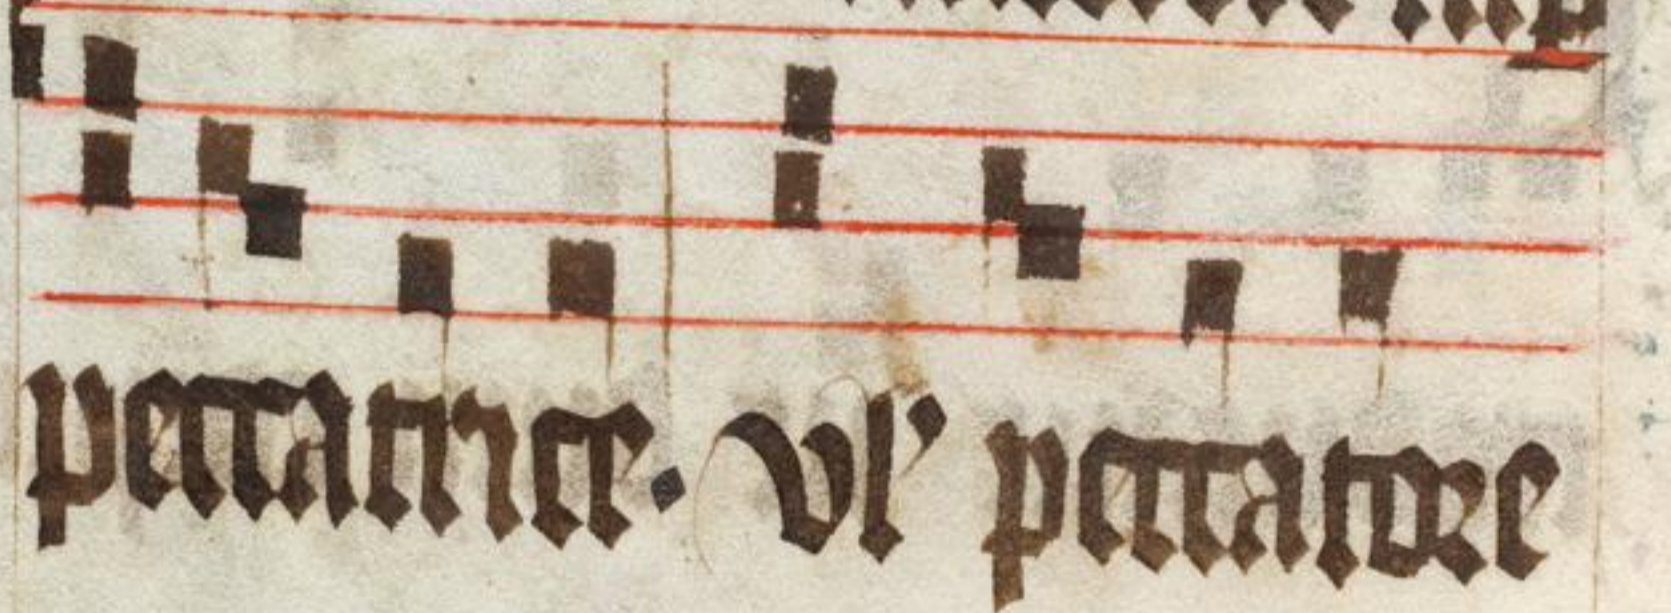 peccatrice. vl' peccatore